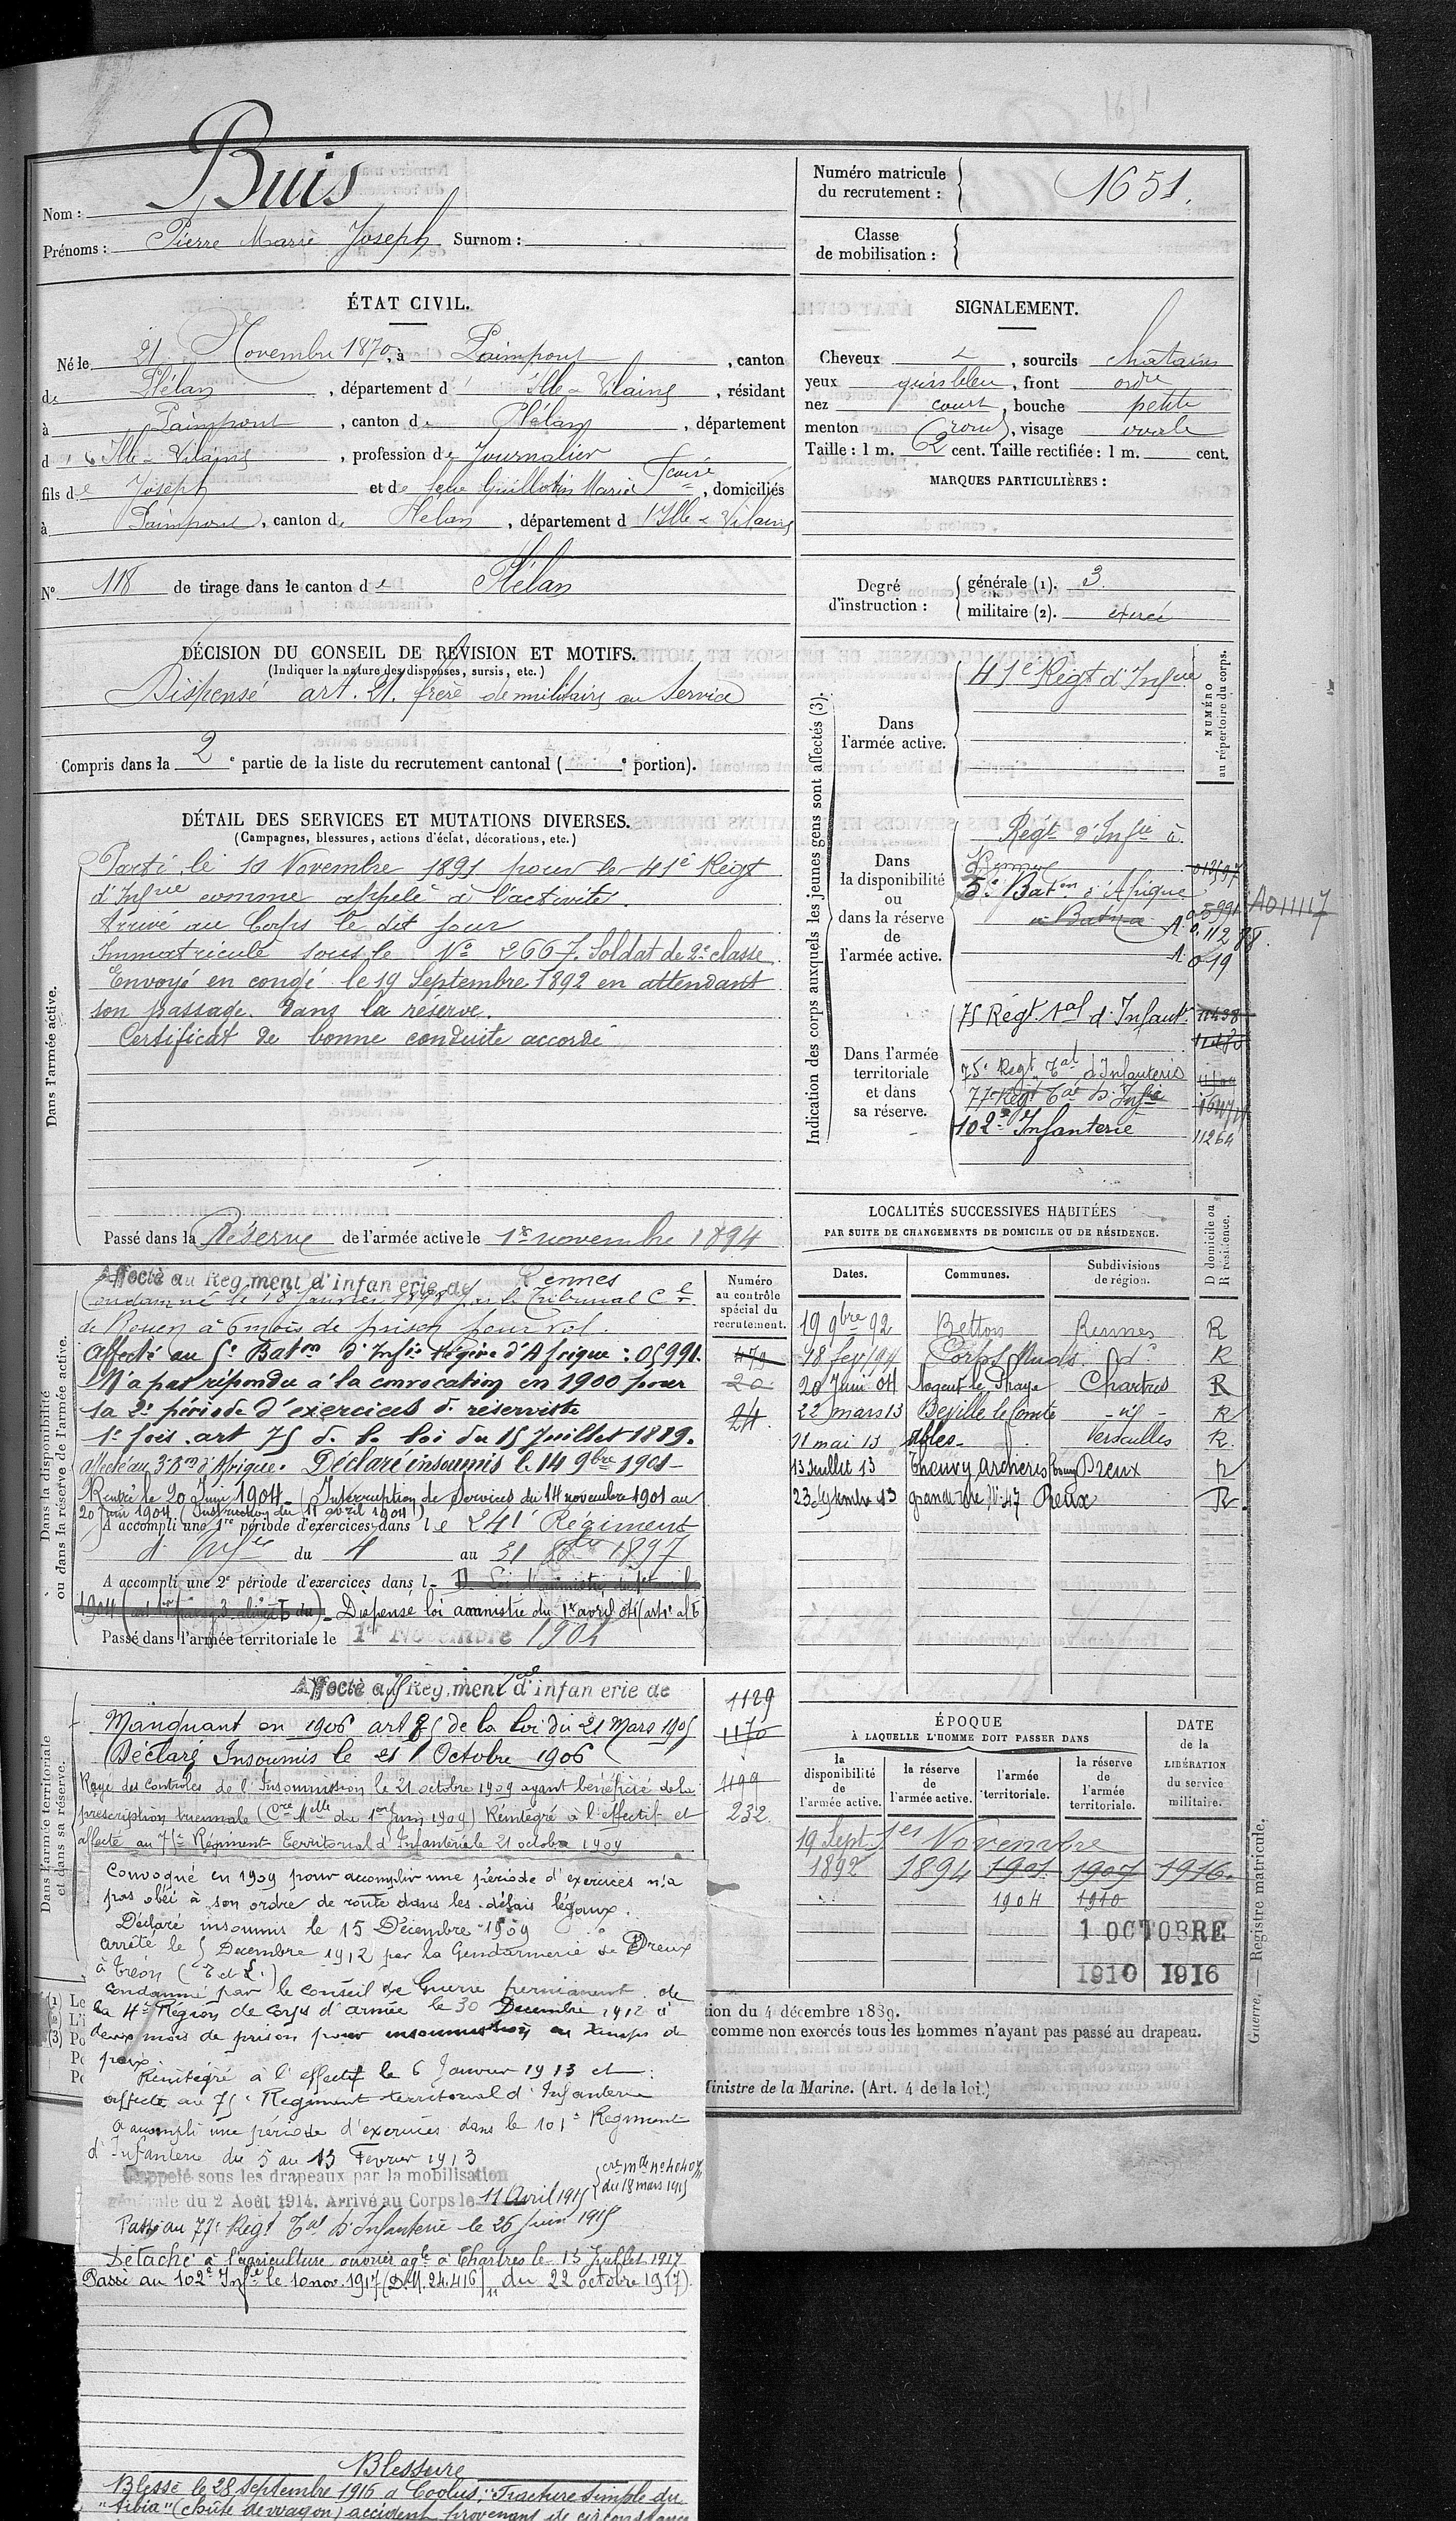 Nom : Buis
Prénoms : Pierre Marie Joseph Surnom :
Numéro matricule
du recrutement : 1651.
Classe
de mobilisation :
ÉTAT CIVIL.
Né le 21 Novembre 1870, à Paimpont, canton
de Plélan, département d'Ille & Vilaine, résidant
à Paimpont, canton de Plélan, département
d'Ille & Vilaine, profession de Journalier
fils de Joseph et de feue Guillotin Marie Fcoise, domiciliés
à Paimpont, canton de Plélan, département d'Ille & Vilaine
N° 118 de tirage dans le canton de Plélan
SIGNALEMENT.
Cheveux , sourcils châtains
yeux gris bleu, front ordre
nez court, bouche petite
menton rond, visage ovale
Taille : 1 m. 62 cent. Taille rectifiée : 1 m. cent.
MARQUES PARTICULIÈRES :
Degré
d'instruction :
générale (1). 3.
militaire (2). exercé
DÉCISION DU CONSEIL DE REVISION ET MOTIFS.
(Indiquer la nature des dispenses, sursis, etc.)
Dispensé art. 21. frère de militaire au Service
Compris dans la 2e partie de la liste du recrutement cantonal ( e portion).
DÉTAIL DES SERVICES ET MUTATIONS DIVERSES.
(Campagnes, blessures, actions d'éclat, décorations, etc.)
Dans l'armée active.
Parti le 10 Novembre 1891 pour le 41e Régt
d'Infrie comme appelé à l'activité.
Arrivé au Corps le dit jour
Immatriculé sous le N° 2667. Soldat de 2e classe.
Envoyé en congé le 19 Septembre 1892 en attendant
son passage dans la réserve.
Certificat de bonne conduite accordé
Passé dans la Réserve de l'armée active le 1er novembre 1894
Indication des corps auxquels les jeunes gens sont affectés (3).
NUMÉRO
au répertoire du corps.
Dans
l'armée active.
41e Régt d'Infrie
Dans
la disponibilité
ou
dans la réserve
de
l'armée active.
Régt d'Infie à
Rennes
5e Baton d'Afrique
à Batna
05991
A011117
A. 019
Dans l'armée
territoriale
et dans
sa réserve.
75 Régt tal d'Infant.
75e Régt Tal d'Infanterie
77e Régt Tal d'Infie
102e Infanterie
11264
LOCALITÉS SUCCESSIVES HABITÉES
PAR SUITE DE CHANGEMENTS DE DOMICILE OU DE RÉSIDENCE.
D domicile ou
R résidence.
Dates. Communes. Subdivisions de région.
19 9bre 92 Betton Rennes R
18 fev 94 Corps Nuds do R
20 Juin 04 Nogent le Phaye Chartres R
22 mars 13 Béville le Comte -id- R
11 mai 13 Ables Versailles R.
13 Juillet 13 Theuvy Achères Dreux R
23 Septembre 13 grande rue N° 47 Dreux R.
Dans la disponibilité
ou dans la réserve de l'armée active.
Numéro
au contrôle
spécial du
recrutement.
479
20
24
Affecté au Régiment d'infanterie de Rennes
Condamné le 18 Janvier 1898 par le Tribunal Cel
de Rouen à 6 mois de prison pour vol.
Affecté au 5e Baton d'Infie légère d'Afrique : 05991.
N'a pas répondu à la convocation en 1900 pour
la 2e période d'exercices de réserviste
1e fois. art 75 de la loi du 15 Juillet 1889.
affecté au 3e Bon d'Afrique. Déclaré insoumis le 14 9bre 1901-
Rentré le 20 Juin 1904 - (Interruption de services du 14 novembre 1901 au
20 juin 1904 (Instruction du 11 avril 1904))
A accompli une 1re période d'exercices dans le 241e Régiment
d'Infie du 4 au 31 1897
A accompli une 2e période d'exercices dans l
- Dispensé loi amnistie du 1er avril 04 (art 1er al 5)
Passé dans l'armée territoriale le 1er Novembre 1904
Dans l'armée territoriale
et dans sa réserve.
Affecté au 75 Régiment tal d'infanterie de
1129
1170
1199
232
Manquant en 1906 art 75 de la loi du 21 Mars 1905
Déclaré Insoumis le 21 Octobre 1906
Rayé des contrôles de l'Insoumission le 21 octobre 1909 ayant bénéficié de la
prescription triennale (Cre Mlle du 1er Juin 1909) Réintégré à l'effectif et
affecté au 75e Régiment Territorial d'Infanterie le 21 octobre 1909
Convoqué en 1909 pour accomplir une période d'exercices n'a
pas obéi à son ordre de route dans les délais légaux.
Déclaré insoumis le 15 Décembre 1909
arrêté le 5 Décembre 1912 par la Gendarmerie de Dreux
à Tréon (E et L.)
Condamné par le conseil de Guerre permanent de
la 4e Région de Corps d'armée le 30 Décembre 1912 à
deux mois de prison pour insoumission en temps de
paix.
Réintégré à l'effectif le 6 Janvier 1913 et
affecté au 75e Régiment territorial d'Infanterie
a accompli une période d'exercices dans le 101e Régiment
d'Infanterie du 5 au 13 Fevrier 1913
Rappelé sous les drapeaux par la mobilisation
générale du 2 Août 1914. Arrivé au Corps le 11 Avril 1915
du 18 mars 1915
Passé au 77e Régt Tal d'Infanterie le 26 juin 1915
Détaché à l'agriculture ouvrier agle à Chartres le 13 Juillet 1917
Passé au 102e Infie le 10 nov. 1917 (D.M. 24.416 du 22 octobre 1917).
Blessure
Blessé le 28 Septembre 1916 à Coolus, "Fracture simple du
"tibia" (chûte de wagon) accident provenant de circonstance
ÉPOQUE
À LAQUELLE L'HOMME DOIT PASSER DANS
la
disponibilité
de
l'armée active.
la réserve
de
l'armée active.
l'armée
territoriale.
la réserve
de
l'armée
territoriale.
DATE
de la
LIBÉRATION
du service
militaire.
19 Sept. 1er Novembre
1892 1894 1901 1907 1916.
1904 1910
1 OCTOBRE
1910 1916
tion du 4 décembre 1889.
comme non exercés tous les hommes n'ayant pas passé au drapeau.
Ministre de la Marine. (Art. 4 de la loi.)
Guerre. — Registre matricule.